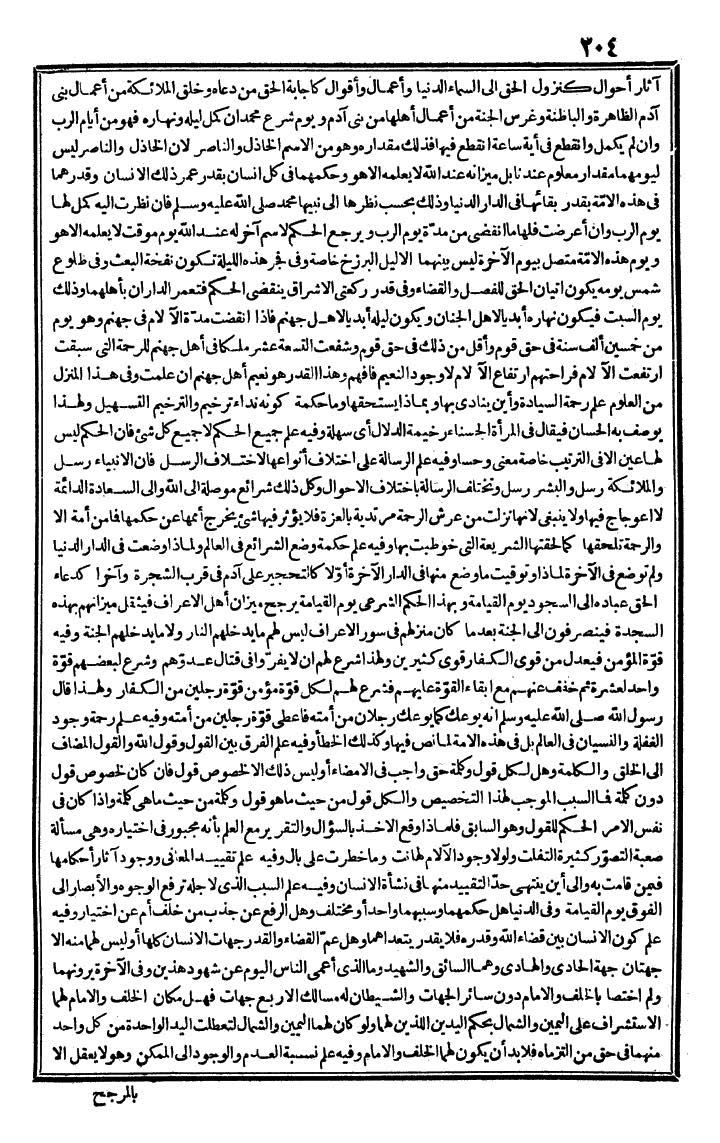 ٣٠٤
آثار أحوال كنزول الحق الى السماء الدنيا وأعمال وأقوال كاجابة الحق من دعاه وخلق الملائكة من أعمال بنى
آدم الظاهرة والباطنة وغرس الجنة من أعمال أهلها من بنى آدم ويوم شرع محمد ان كمل ليله ونهاره فهو من أيام الرب
وان لم يكمل وانقطع فى أية ساعة انقطع فيها فذلك مقداره وهو من الاسم الخاذل والناصر لان الخاذل والناصر ليس
ليومهما مقدار معلوم عندنا بل ميزانه عند الله لا يعلمه الا هو وحكمهما فى كل انسان بقدر عمر ذلك الانسان وقدرهما
فى هذه الامّة بقدر بقائها فى الدار الدنيا وذلك بحسب نظرها الى نبيها محمد صلى الله عليه وسلم فان نظرت اليه كمل لها
يوم الرب وان أعرضت فلها ما انقضى من مدّة يوم الرب ويرجع الحكم لاسم آخر له عند الله يوم موقت لا يعلمه الا هو
ويوم هذه الامّة متصل بيوم الآخرة ليس بينهما الا ليل البرزخ خاصة وفى فجر هذه الليلة تكون نفخة البعث وفى طلوع
شمس يومه يكون اتيان الحق للفصل والقضاء وفى قدر ركعتى الاشراق ينقضى الحكم فتعمر الداران بأهلهما وذلك
يوم السبت فيكون نهاره أبديا لاهل الجنان ويكون ليله أبديا لاهل جهنم فاذا انقضت مدّة الآلام فى جهنم وهو يوم
من خمسين ألف سنة فى حق قوم وأقل من ذلك فى حق قوم وشفعت التسعة عشر ملكا فى أهل جهنم للرحمة التى سبقت
ارتفعت الآلام فراحتهم ارتفاع الآلام لا وجود النعيم فافهم وهذا القدر هو نعيم أهل جهنم ان علمت وفى هذا المنزل
من العلوم علم رحمة السيادة وأين ينادى بها وبماذا يستحقها وما حكمة كونه نداء ترخيم والترخيم التسهيل ولهذا
يوصف به الحسان فيقال فى المرأة الحسناء رخيمة الدلال أى سهلة وفيه علم جميع الحكم لا جميع كل شئ فان الحكم ليس
لها عين الا فى الترتيب خاصة معنى وحسا وفيه علم الرسالة على اختلاف أنواعها لاختلاف الرسل فان الانبياء رسل
والملائكة رسل والبشر رسل وتختلف الرسالة باختلاف الاحوال وكل ذلك شرائع موصلة الى الله والى السعادة الدائمة
لا اعوجاج فيها ولا ينبغى لانها نزلت من عرش الرحمة مرتدية بالعزة فلا يؤثر فيها شئ يخرج أممها عن حكمها فما من أمة الا
والرحمة تلحقها كما لحقتها الشريعة التى خوطبت بها وفيه علم حكمة وضع الشرائع فى العالم ولماذا وضعت فى الدار الدنيا
ولم توضع فى الآخرة لماذا وتوقيت ما وضع منها فى الدار الآخرة أوّلا كالتحجير على آدم فى قرب الشجرة وآخرا كدعاء
الحق عباده الى السجود يوم القيامة وبهذا الحكم الشرعى يوم القيامة يرجح ميزان أهل الاعراف فيثقل ميزانهم بهذه
السجدة فينصرفون الى الجنة بعدما كان منزلهم فى سور الاعراف ليس لهم ما يدخلهم النار ولا ما يدخلهم الجنة وفيه
قوّة المؤمن فيعدل من قوى الكفار قوى كثيرين ولهذا شرع لهم ان لا يفرّوا فى قتال عدوّهم وشرع لبعضهم قوّة
واحد لعشرة ثم خفف عنهم مع ابقاء القوّة عليهم فشرع لهم لكل قوّة مؤمن قوّة رجلين من الكفار ولهذا قال
رسول الله صلى الله عليه وسلم انه يوعك كما يوعك رجلان من أمته فاعطى قوّة رجلين من أمته وفيه علم رحمة وجود
الغفلة والنسيان فى العالم بل فى هذه الامة لما نص فيها وكذلك الخطأ وفيه علم الفرق بين القول وقول الله والقول المضاف
الى الخلق والكلمة وهل لكل قول وكلمة حق واجب فى الامضاء أو ليس ذلك الا لخصوص قول فان كان لخصوص قول
دون كلمة فما السبب الموجب لهذا التخصيص والكل قول من حيث ما هو قول وكلمة من حيث ما هى كلمة واذا كان فى
نفس الامر الحكم للقول وهو السابق فلماذا وقع الاخذ بالسؤال والتقرير مع العلم بأنه مجبور فى اختياره وهى مسألة
صعبة التصوّر كثيرة التفلت ولولا وجود الآلام لهانت وما خطرت على بال وفيه علم تقييد المعانى ووجود آثار أحكامها
فيمن قامت به والى أين ينتهى حدّ التقييد منها فى نشأة الانسان وفيه علم السبب الذى لاجله ترفع الوجوه والأبصار الى
الفوق يوم القيامة وفى الدنيا هل حكمهما وسببهما واحد أو مختلف وهل الرفع عن جذب من خلف أم عن اختيار وفيه
علم كون الانسان بين قضاء الله وقدره فلا يقدر يتعداهما وهل عمّ القضاء والقدر جهات الانسان كلها أو ليس لهما منه الا
جهتان جهة الحادى والهادى وهما السائق والشهيد وما الذى أعمى الناس اليوم عن شهود هذين وفى الآخرة يرونهما
ولم اختصا بالخلف والامام دون سائر الجهات والشيطان له مسالك الاربع جهات فهل مكان الخلف والامام لهما
الاستشراف على اليمين والشمال بحكم اليدين اللذين لهما ولو كان لهما اليمين والشمال لتعطلت اليد الواحدة من كل واحد
منهما فى حق من التزماه فلا بد أن يكون لهما الخلف والامام وفيه علم نسبة العدم والوجود الى الممكن وهو لا يعقل الا
بالمرجح